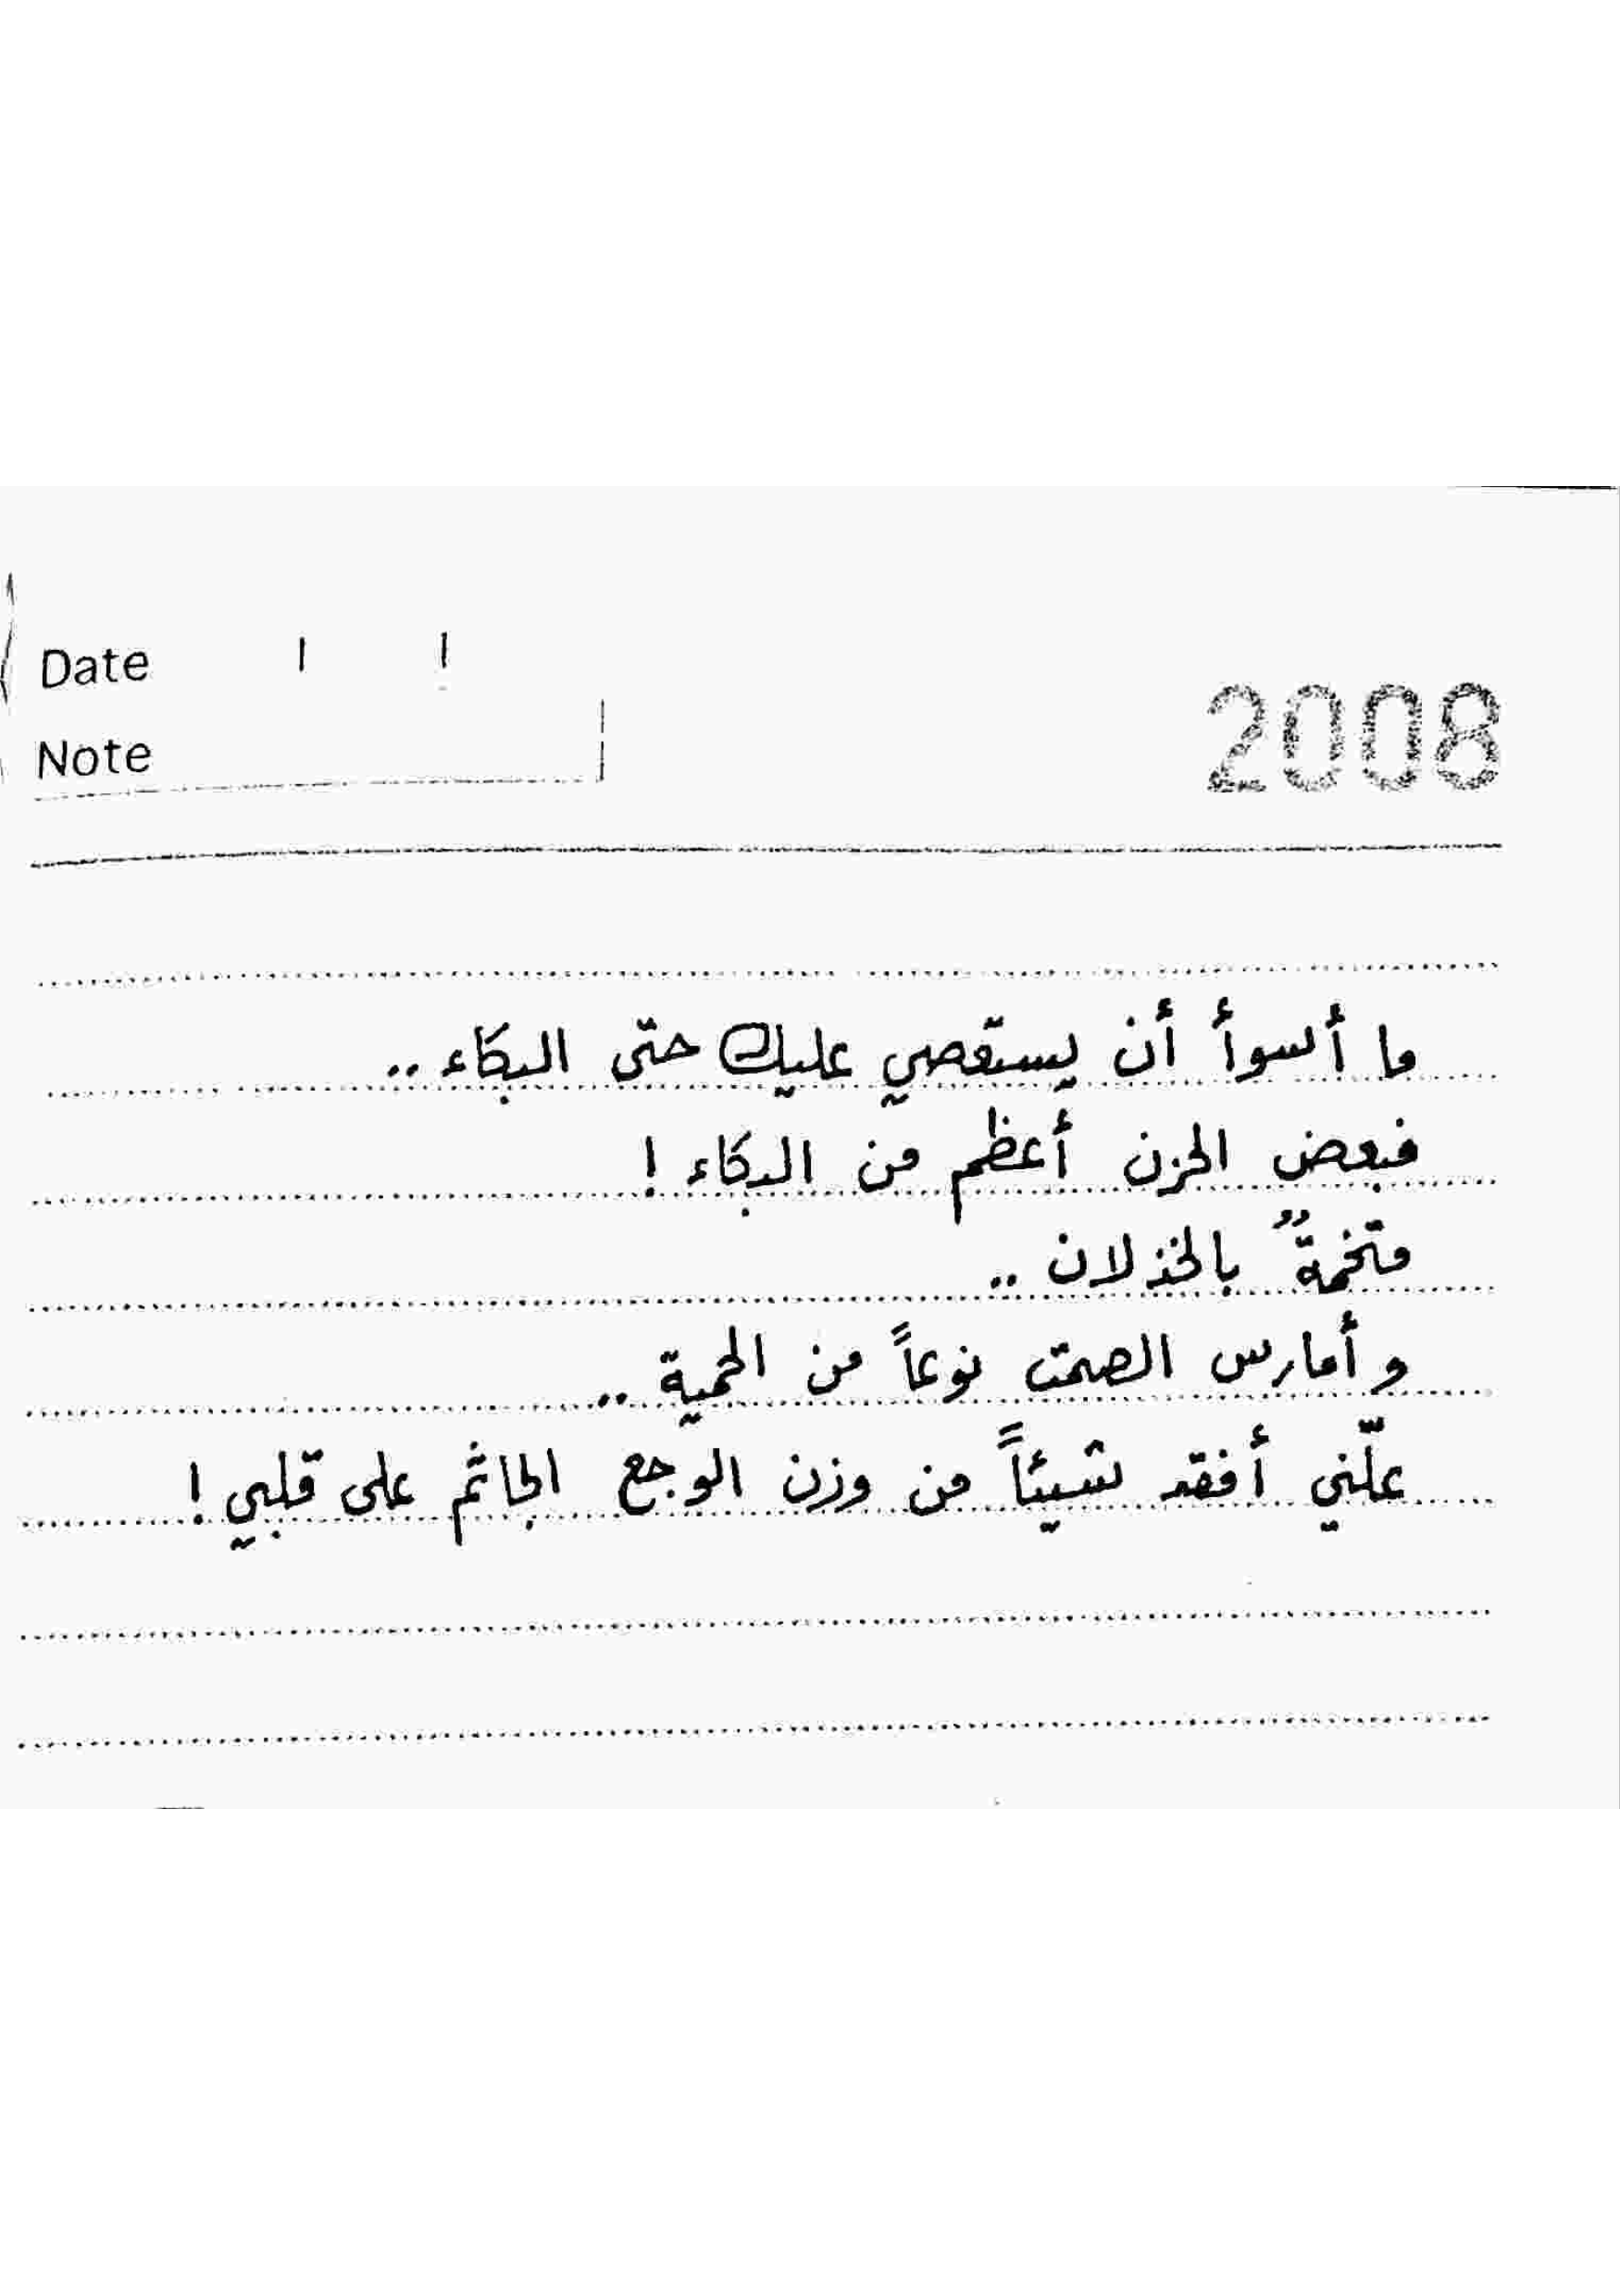 Date / /
Note
2008
ما أسوأ أن يستقصي عليك حتى البكاء ..
فبعض الحزن أعظم من البكاء !
متخمةٌ بالخذلان ..
و أمارس الصمت نوعاً من الحمية ..
علّني أفقد شيئاً من وزن الوجع الجاثم على قلبي !